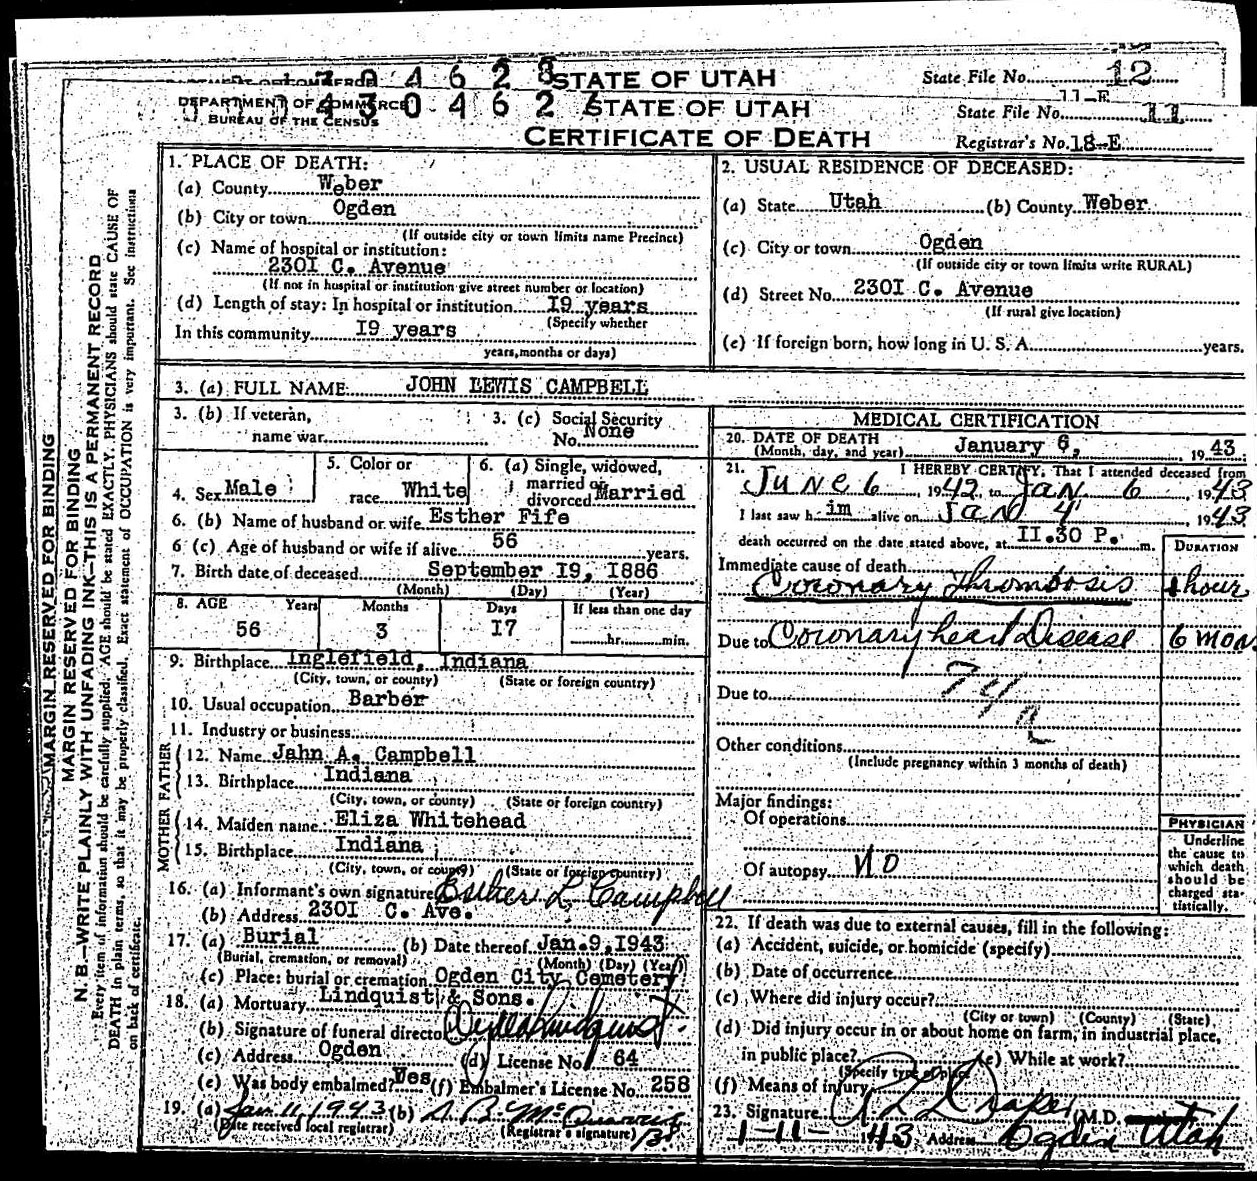 4 6 2 8 STATE OF UTAH State File No. 12
DEPARTMENT OF COMMERCE 4 3 0 4 6 2 7 STATE OF UTAH 11-E
BUREAU OF THE CENSUS State File No. 11
CERTIFICATE OF DEATH Registrar's No. 18-E
MARGIN RESERVED FOR BINDING
MARGIN RESERVED FOR BINDING
N. B.—WRITE PLAINLY WITH UNFADING INK—THIS IS A PERMANENT RECORD
Every item of information should be carefully supplied. AGE should be stated EXACTLY. PHYSICIANS should state CAUSE OF
DEATH in plain terms, so that it may be properly classified. Exact statement of OCCUPATION is very important. See instructions
on back of certificate.
1. PLACE OF DEATH:
(a) County Weber
(b) City or town Ogden
(If outside city or town limits name Precinct)
(c) Name of hospital or institution:
2301 C. Avenue
(If not in hospital or institution give street number or location)
(d) Length of stay: In hospital or institution 19 years
(Specify whether
In this community 19 years
years, months or days)
2. USUAL RESIDENCE OF DECEASED:
(a) State Utah (b) County Weber
(c) City or town Ogden
(If outside city or town limits write RURAL)
(d) Street No. 2301 C. Avenue
(If rural give location)
(e) If foreign born, how long in U. S. A. years.
3. (a) FULL NAME JOHN LEWIS CAMPBELL
3. (b) If veteran,
name war
3. (c) Social Security
No. None
4. Sex Male
5. Color or
race White
6. (a) Single, widowed,
married or
divorced Married
6. (b) Name of husband or wife Esther Fife
6 (c) Age of husband or wife if alive 56 years.
7. Birth date of deceased September 19, 1886
(Month) (Day) (Year)
8. AGE Years Months Days If less than one day
56 3 17 hr. min.
9. Birthplace Inglefield, Indiana
(City, town, or county) (State or foreign country)
10. Usual occupation Barber
11. Industry or business
FATHER
12. Name Jahn A. Campbell
13. Birthplace Indiana
(City, town, or county) (State or foreign country)
MOTHER
14. Maiden name Eliza Whitehead
15. Birthplace Indiana
(City, town, or county) (State or foreign country)
16. (a) Informant's own signature Esther L Campbell
(b) Address 2301 C. Ave.
17. (a) Burial (b) Date thereof Jan. 9, 1943
(Burial, cremation, or removal) (Month) (Day) (Year)
(c) Place: burial or cremation Ogden City Cemetery
18. (a) Mortuary Lindquist & Sons.
(b) Signature of funeral director
(c) Address Ogden (d) License No. 64
(e) Was body embalmed? Yes (f) Embalmer's License No. 258
19. (a) Jan 11, 1943 (b)
(Date received local registrar) (Registrar's signature)
MEDICAL CERTIFICATION
20. DATE OF DEATH
(Month, day, and year) January 6, 1943
21. I HEREBY CERTIFY, That I attended deceased from
June 6, 1942, to Jan. 6, 1943
I last saw h im alive on Jan 4 1943
death occurred on the date stated above, at 11.30 P. m.
DURATION
Immediate cause of death
Coronary Thrombosis 1 hour
Due to Coronary heart Disease 6 mon.
Due to
Other conditions
(Include pregnancy within 3 months of death)
Major findings:
Of operations
Of autopsy No
PHYSICIAN
Underline
the cause to
which death
should be
charged sta-
tistically.
22. If death was due to external causes, fill in the following:
(a) Accident, suicide, or homicide (specify)
(b) Date of occurrence
(c) Where did injury occur?
(City or town) (County) (State)
(d) Did injury occur in or about home on farm, in industrial place,
in public place? (e) While at work?
(Specify type of place)
(f) Means of injury
23. Signature Draper (M.D.
1-11-1943 Address Ogden Utah